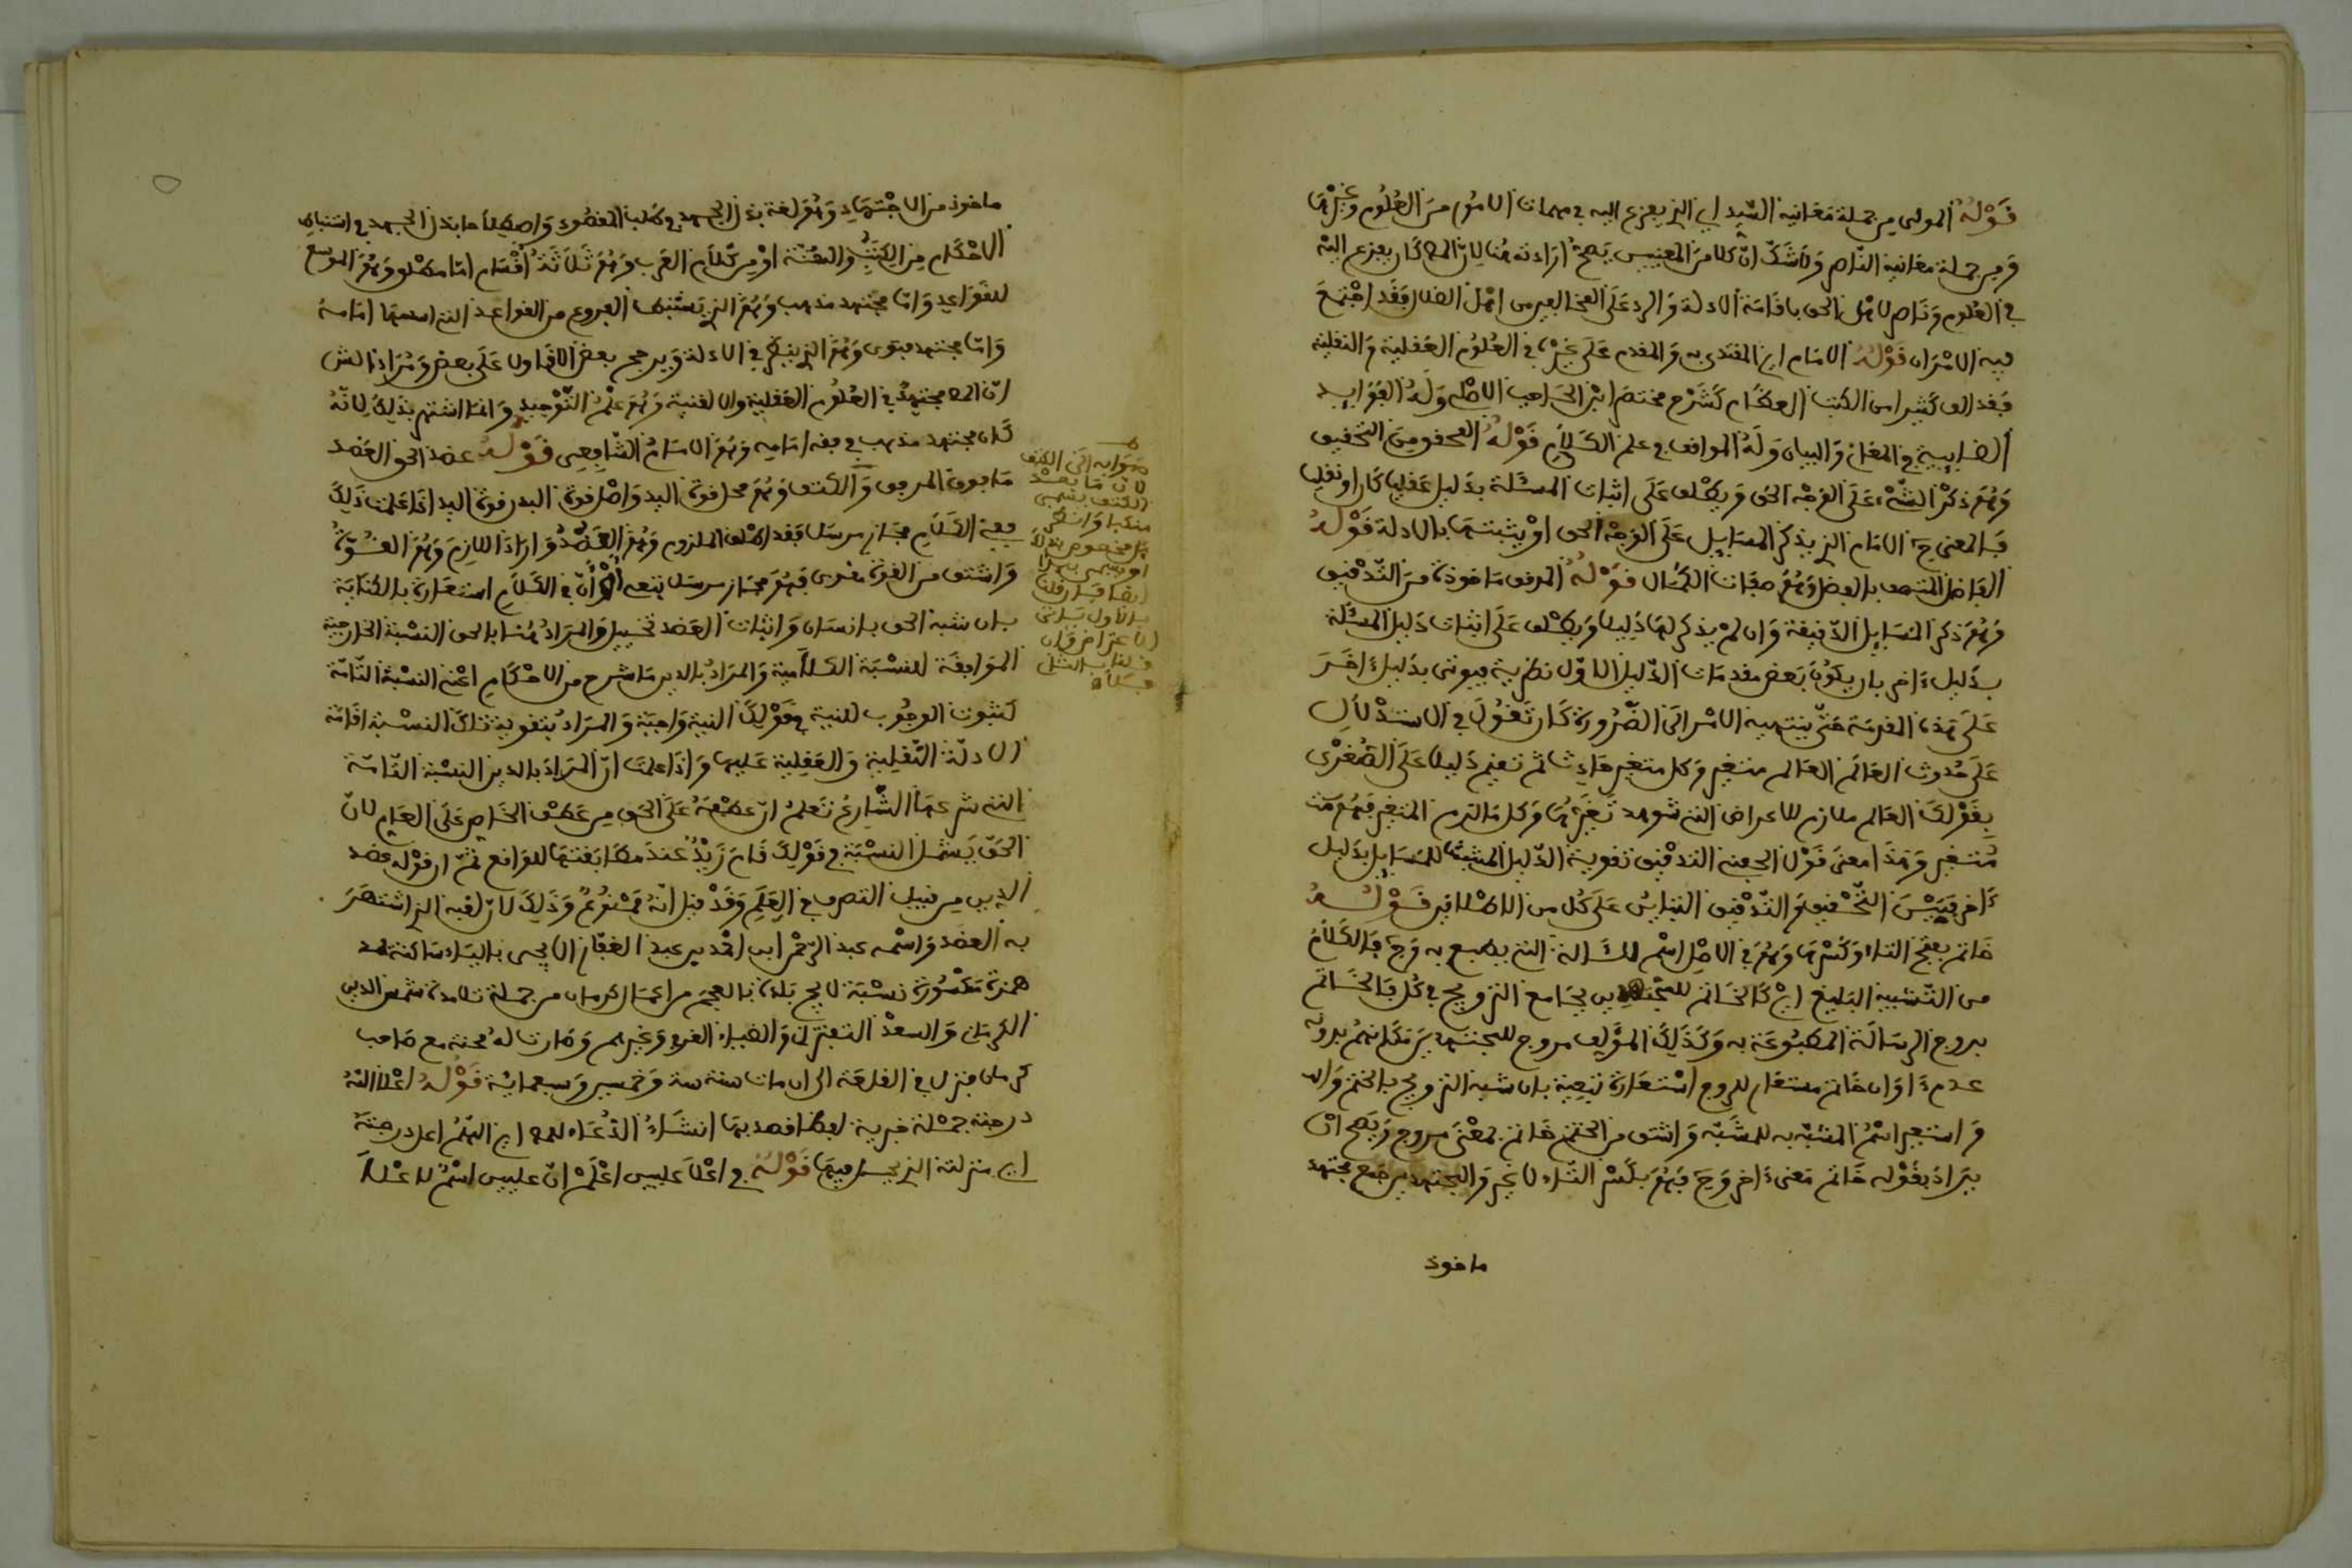 قَوْلُهُ المولى من جملة مَعَانيه السَّيد اي الذي يفزع اليه في مهمات الامُورِ مِنَ العُلومِ وَغَيْرِهَا
وَمِن جملة معانيه النَّاصر وَلَا شَكَّ انّ كلا مِنَ المعنيين يَصحُّ ارَادته هُنا لِانّ المص كَان يفزع اليْه
في العُلُومِ وَنَاصر لاهْل الحق باقَامَة الادلة وَالرد عَلَى المخالفين من اهْل الضلال فَقَد اجْتَمَعَ
فيه الامْرَان قَوْلُهُ الامَام اي المقتدى به وَالمقدم عَلَى غَيْره في العُلُوم العَقلية وَالنقلية
فقد الف كَثيرا من الكتب العظَام كَشَرْح مختصَر ابْن الحَاجب الاصْلي وَلهُ الفَوَايد
الغياثية في المعَاني وَالبيان وَلَهُ المواقف في علم الكَلَامِ قَوْلُهُ المحقق مِنَ التحقيق
وَهُوَ ذكرُ الشَّيْء عَلَى الوَجْه الحق وَيطْلق عَلَى اثبات المسئلة بدَليل عَقليا كَان او نقليا
فَالمعنى ح الامَام الذي يذكر المسَايل عَلَى الوَجْه الحق اوْ يثبتهَا بالادلة قَوْلهُ
الفاضل المتصف بالفضل وَهُوَ صفات الكَمَال قَوْلهُ المدقق مَاخوذ مِنَ التَّدقيق
وَهُوَ ذكر المسَايل الدّقيقة وَان لم يذكر لهَا دَليلا وَيطْلق عَلَى اثبات دَليل المسئلة
بدَليل ءاخر بان يكوُنَ بَعض مقدمَات الدّليل الاوّل نظرية فيوتى بدَليل ءَاخَرَ
عَلَى هَذه المقدمَة حَتَّى ينتهى الامْر الَى الضَّرُورة كَان تَقوُلَ في الاستدْلَالِ
عَلَى حُدُوث العَالَم العَالم متغير وَكل متغير حَادِث ثم تقيم دَليلا عَلَى الصُغْرَى
بِقَوْلكَ العَالم ملازم للاعراض التي شوهد تَغَيُّرُهَا وَكل مَا لازم المتغير فَهُوَ
مُتغير وَهَذَا معنى قَوْل التدقيق تقوية الدّليل المثبت للمَسَايل بدَليل
ءَاخر فبَيْنَ التَّحْقيق وَالتَّدقيق التباين عَلَى كُل من الاطلاقين قَوْلُهُ
خَاتم بفتح التاء وَكَسْرِهَا وَهُوَ في الاصْل اسْم للالة التي يطبع به وَح فَالكَلَامُ
من التَّشبيه البَليغ ايْ كَالخَاتم للمُجْتَهدِين بجَامع الترويج في كُل فَالخَاتم
يروج الرسَالَة المطبُوعَة به وَكَذَلكَ المؤلِف مروج للمجتهدين فكَانهُم بدونه
عدم ءا وَان خَاتم مستعَار لمروج اسْتعَارة تبَعية بان شبه الترويج بالختم وَ
وَاستعير اسْمُ المشَبَّه به للمشَبَّه وَاشتق من الختم خَاتم بمعْنى مروج وَيَصح انْ
يرَادَ بقَوْله خَاتم مَعنى ءَاخر وَح فَهُوَ بكَسْر التَّاءِ لا غير وَالمجتهدين جَمع مجتهد
ماخوذ
ماخوذ من الاجْتهَادِ وَهُوَ لغة بذل الجهد في طَلب المقصُود وَاصطلاحا بذل الجهد في استنباط
الاحْكَام مِن الكتَبِ وَالسُّنَّة اوْ من كَلَامِ العَرب وَهُوَ ثَلَاثَةُ اقْسَامٍ امّا مطْلق وَهُوَ الموسع
للقوَاعد وَامّا مجتهد مذهب وَهُوَ الذي يَسْتَنبط الفروع من القواعد التي اسسهَا امَامهُ
وَامّا مجتهد فتوى وَهُوَ الذي ينظُر في الادلة وَيرجح بعض الاقاويل عَلَى بعض وَمُرَادُ الش
انّ المص مجتهدٌ في العُلُوم العَقلية وَهُوَ علْمُ التَّوْحيد وَانما اشتهر بذَلِكَ لِانَّهُ
كَان مجتهد مذهب في فقه امَامه وَهُوَ الامَام الشَّافِعي قَوْلهُ عضد الحق العَضد
مَا بين المرفق وَالكتف وَهُوَ محل قوة اليد وَاصْل قوة البدن قوة اليد اذَا علمت ذَلِكَ
ففي الكَلَامِ مجَاز مرسل فقد اطلق الملزوم وَهُوَ العَضُد وَارَادَ اللازِم وَهُوَ القُوّة
وَاشتق من القوة مقوى فَهُوَ مجَاز مرسل تبَعي اوْ انّ في الكَلَامِ استعَارة بالكنَايَة
بان شبه الحق بانسَان وَاثبات العَضد تخييل وَالمرَادُ هُنا بالحق النسْبة الخارجية
الموَافِقَة للنسْبَة الكَلَامية وَالمرَادُ بالدين مَا شرح من الاحْكَامِ اعْني النسْبة التَّامّة
كثبوت الوجُوب للنية في قَوْلِكَ النية وَاجبَة وَالمرَادُ بتقوية تلكَ النسْبة اقَامَة
الادلّة النَّقلية وَالعَقلية عَليها وَاذَا علمت انّ المرَادَ بالدين النسْبة التَّامّة
التي شرعهَا الشَّارعُ تَعلمُ انّ عطْفهُ عَلَى الحق من عَطْف الخَاص عَلَى العَام لانّ
الحَقَّ يَشمل النسْبَة في قَوْلِكَ قَامَ زَيْدٌ عندَ مطَابَقتهَا للوَاقع ثمّ ان قوْله عضد
الدين من قبيل التصرف في العَلَمِ وَقَدْ قيل انّهُ مَمْنُوعٌ وَذَلِكَ لانّ لقبه الذي اشتهَرَ
به العضد وَاسْمه عبد الرّحْمن ابن احْمد بن عبد الغفّار الايجى باليَاء سَاكنة بعد
همزة مَكْسُورَة نسْبَة لايج بَلدة بالعجَم من اعمَال كرمان من جملة تلامذته شمْس الدين
الكرمَاني وَالسعدْ التفتزاني وَالضياء القرمي وَغيرهم وَصَارت لهُ محنة مع صَاحب
كرمان فنزل في القلعَة الى ان مات سنة ستة وَخمسين وَسبعمائة قَوْلهُ اعْلَا اللهُ
درجته جملَة خبرية لفظا قصد بها انشَاءُ الدُّعَاء للمص اي اللهُمَّ اعل درجتَهُ
اي منزلته الذي يحل فيهَا قَوْلهُ في اعْلَا عليين اعْلَمْ انّ عليين اسْمٌ لاعْلَا
صَوَابه الَى الكتف
لانّ مَا بعْد
الكتف يسمى
منكبا